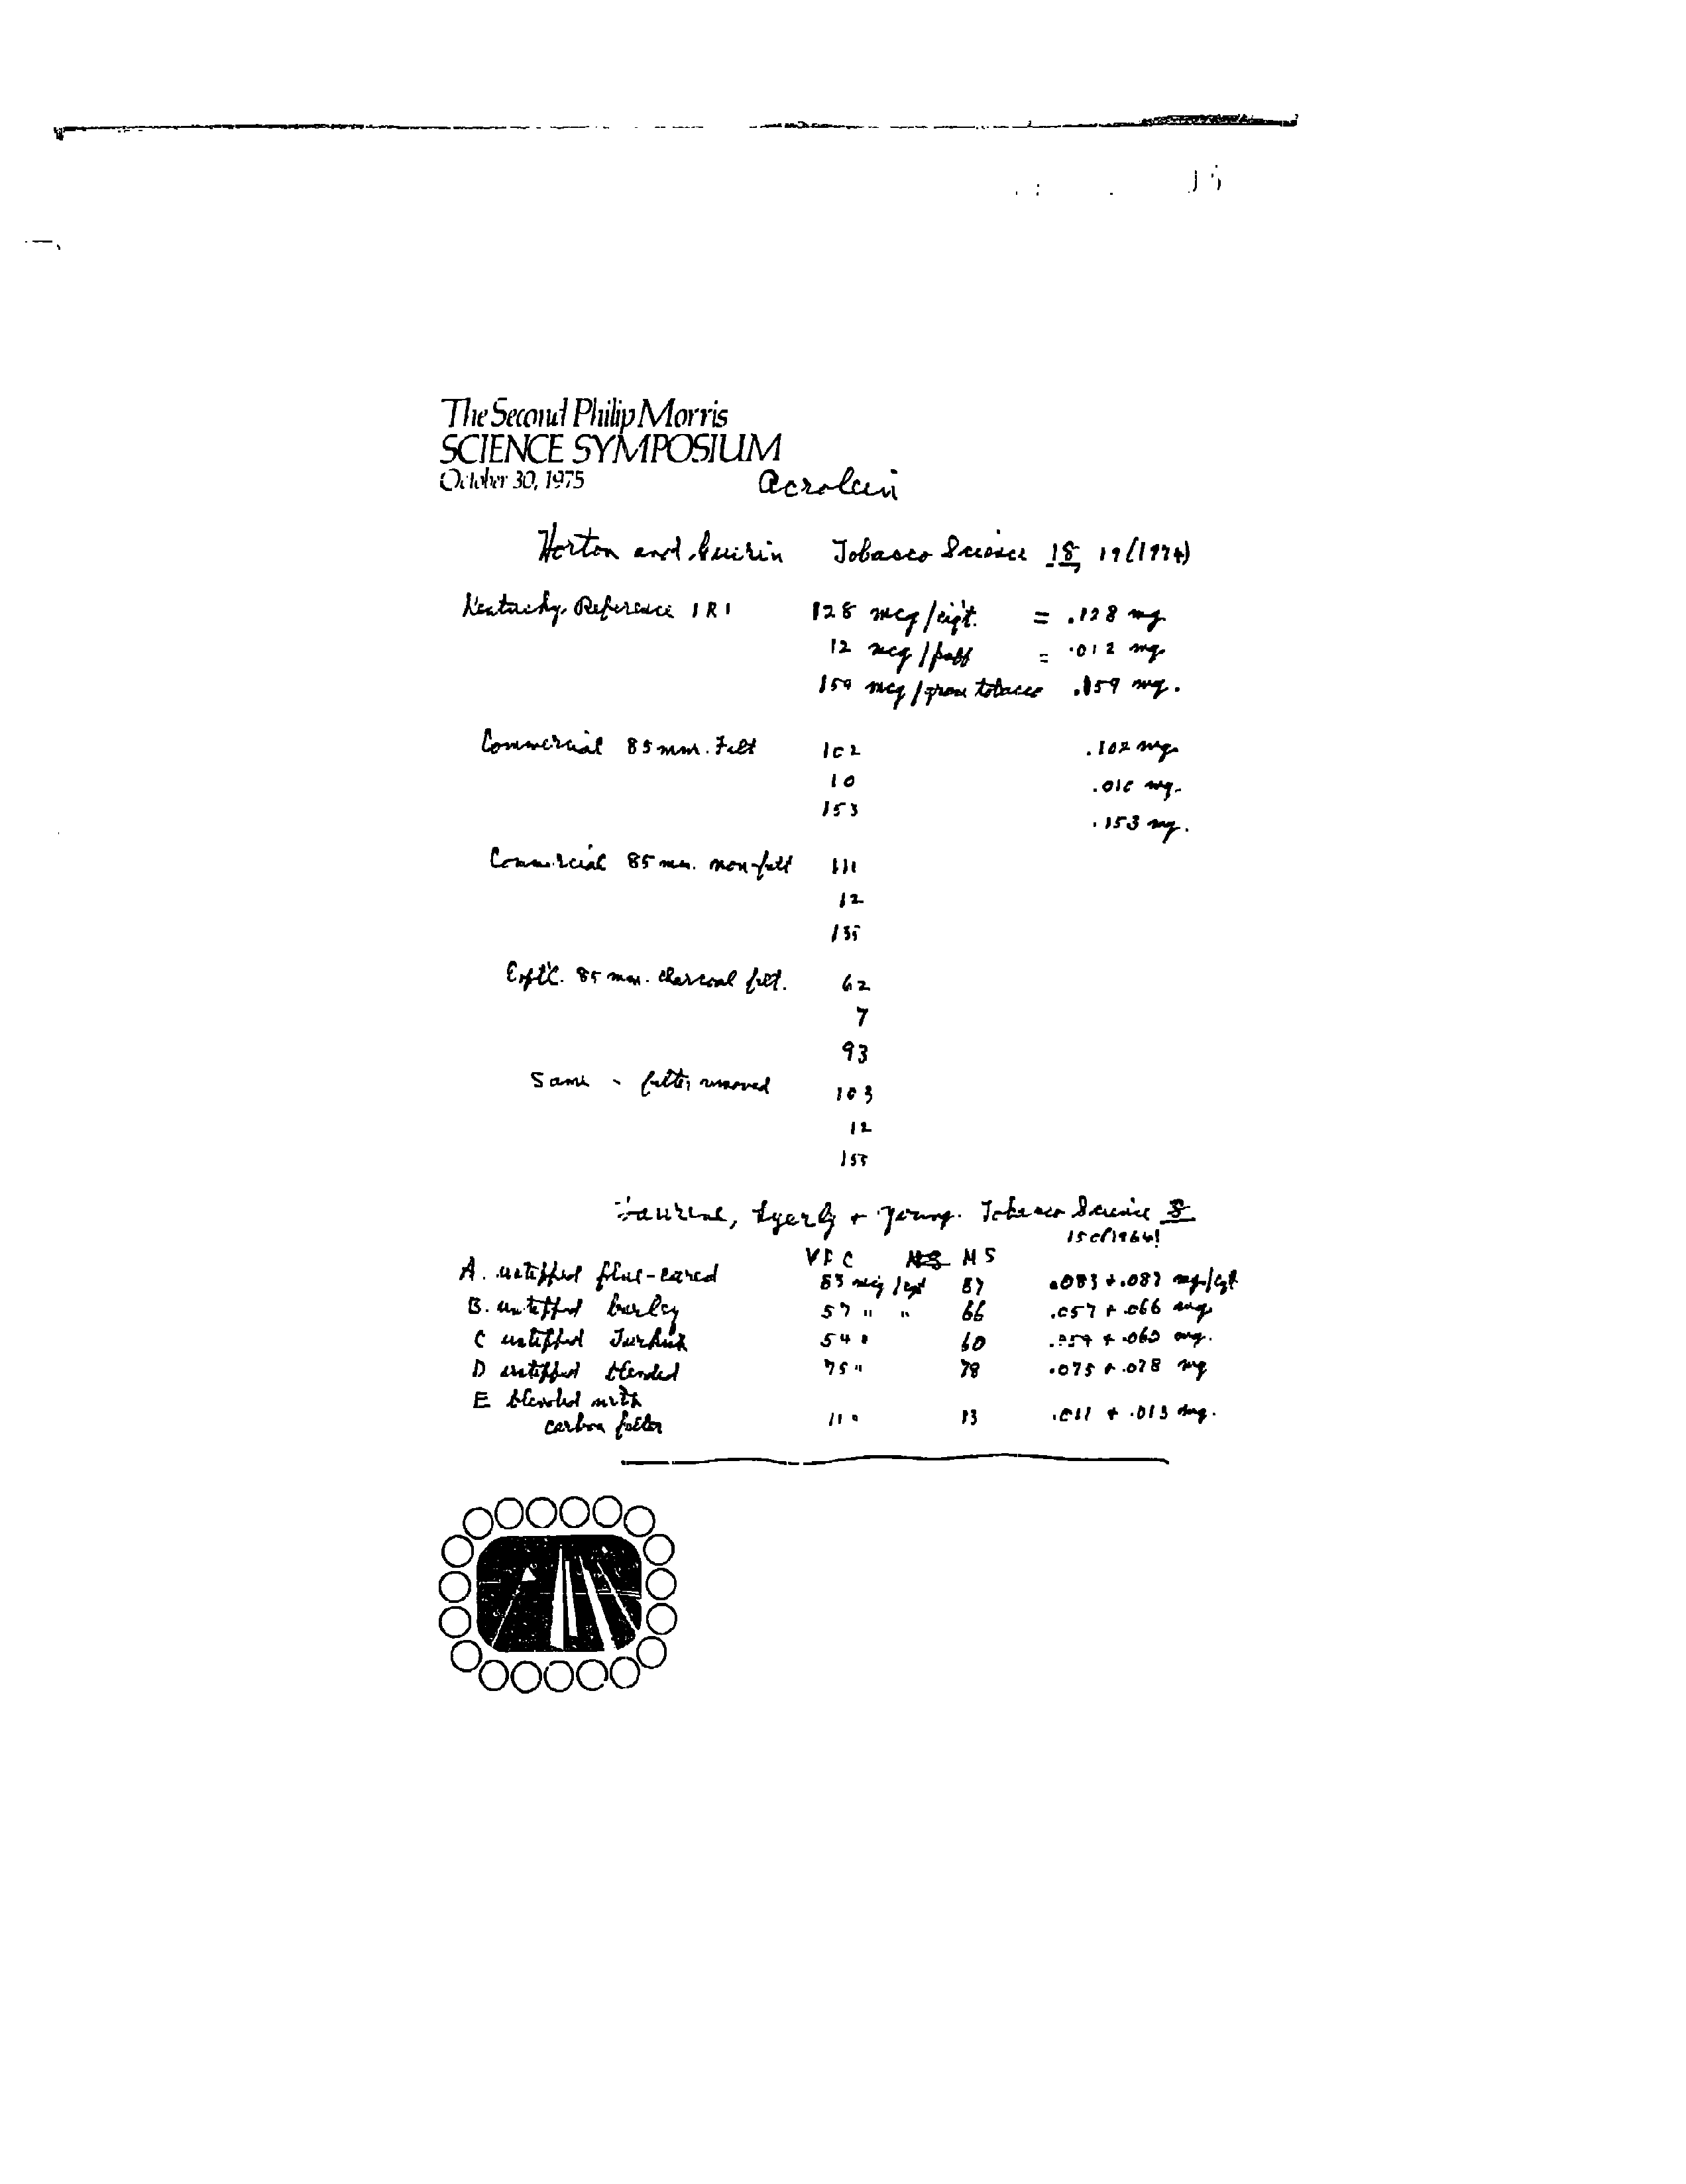 The Second Philip Morris
SCIENCE SYMPOSIUM
October 30, 1975
Acrolein
Horton and Guerin Tobacco Science 18, 19 (1974)
Kentucky Reference 1R1 128 mcg/cigt. = .128 mg
12 mcg/puff = .012 mg
159 mcg/gram tobacco .159 mg.
Commercial 85 mm. Filt 102 .102 mg
10 .010 mg.
153 .153 mg.
Commercial 85 mm. non-filt 111
12
135
Exptl. 85 mm. charcoal filt. 62
7
93
Same - filter removed 103
12
155
Lyerly + Young. Tobacco Science 8
150 (1964)
VPC MS
A. untipped flue-cured 83 mcg/cigt 87 .083 + .087 mg/cgt
B. untipped burley 57 " " 66 .057 + .066 mg
C untipped Turkish 54 " 60 .054 + .060 mg.
D untipped blended 75 " 78 .075 + .078 mg
E blended with
carbon filter 11 " 13 .011 + .013 mg.